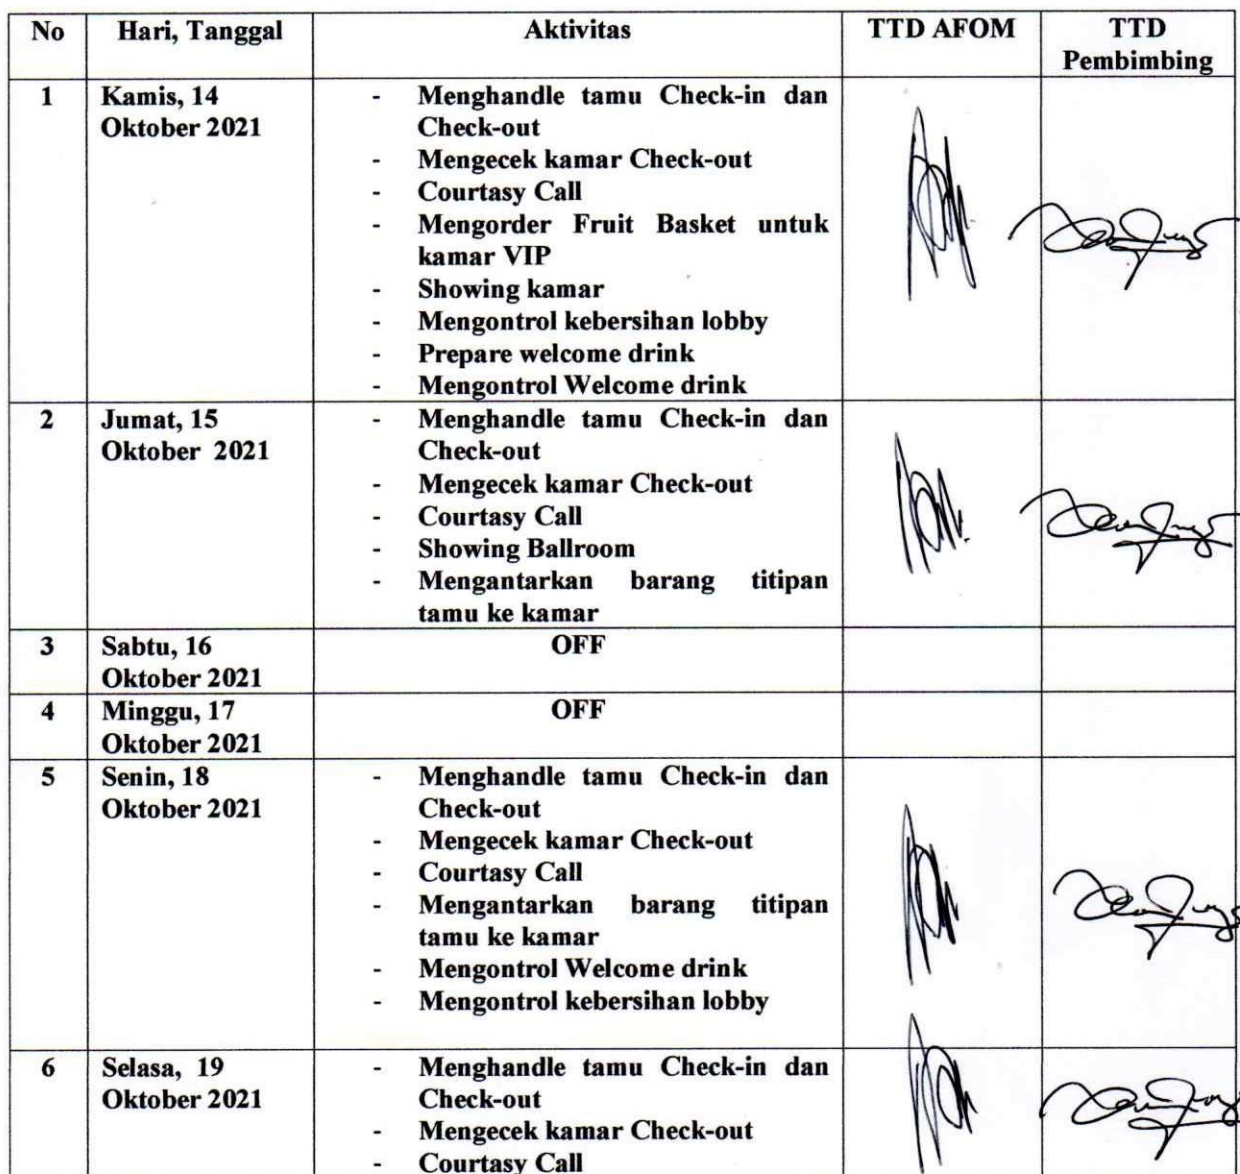 No Hari, Tanggal Aktivitas TTD AFOM TTD
Pembimbing
1 Kamis, 14 - Menghandle tamu Check-in dan
Oktober 2021 Check-out
- Mengecek kamar Check-out
- Courtasy Call
- Mengorder Fruit Basket untuk
kamar VIP
- Showing kamar
- Mengontrol kebersihan lobby
- Prepare welcome drink
- Mengontrol Welcome drink
2 Jumat, 15 - Menghandle tamu Check-in dan
Oktober 2021 Check-out
- Mengecek kamar Check-out
- Courtasy Call
- Showing Ballroom
- Mengantarkan barang titipan
tamu ke kamar
3 Sabtu, 16 OFF
Oktober 2021
4 Minggu, 17 OFF
Oktober 2021
5 Senin, 18 - Menghandle tamu Check-in dan
Oktober 2021 Check-out
- Mengecek kamar Check-out
- Courtasy Call
- Mengantarkan barang titipan
tamu ke kamar
- Mengontrol Welcome drink
- Mengontrol kebersihan lobby
6 Selasa, 19 - Menghandle tamu Check-in dan
Oktober 2021 Check-out
- Mengecek kamar Check-out
- Courtasy Call